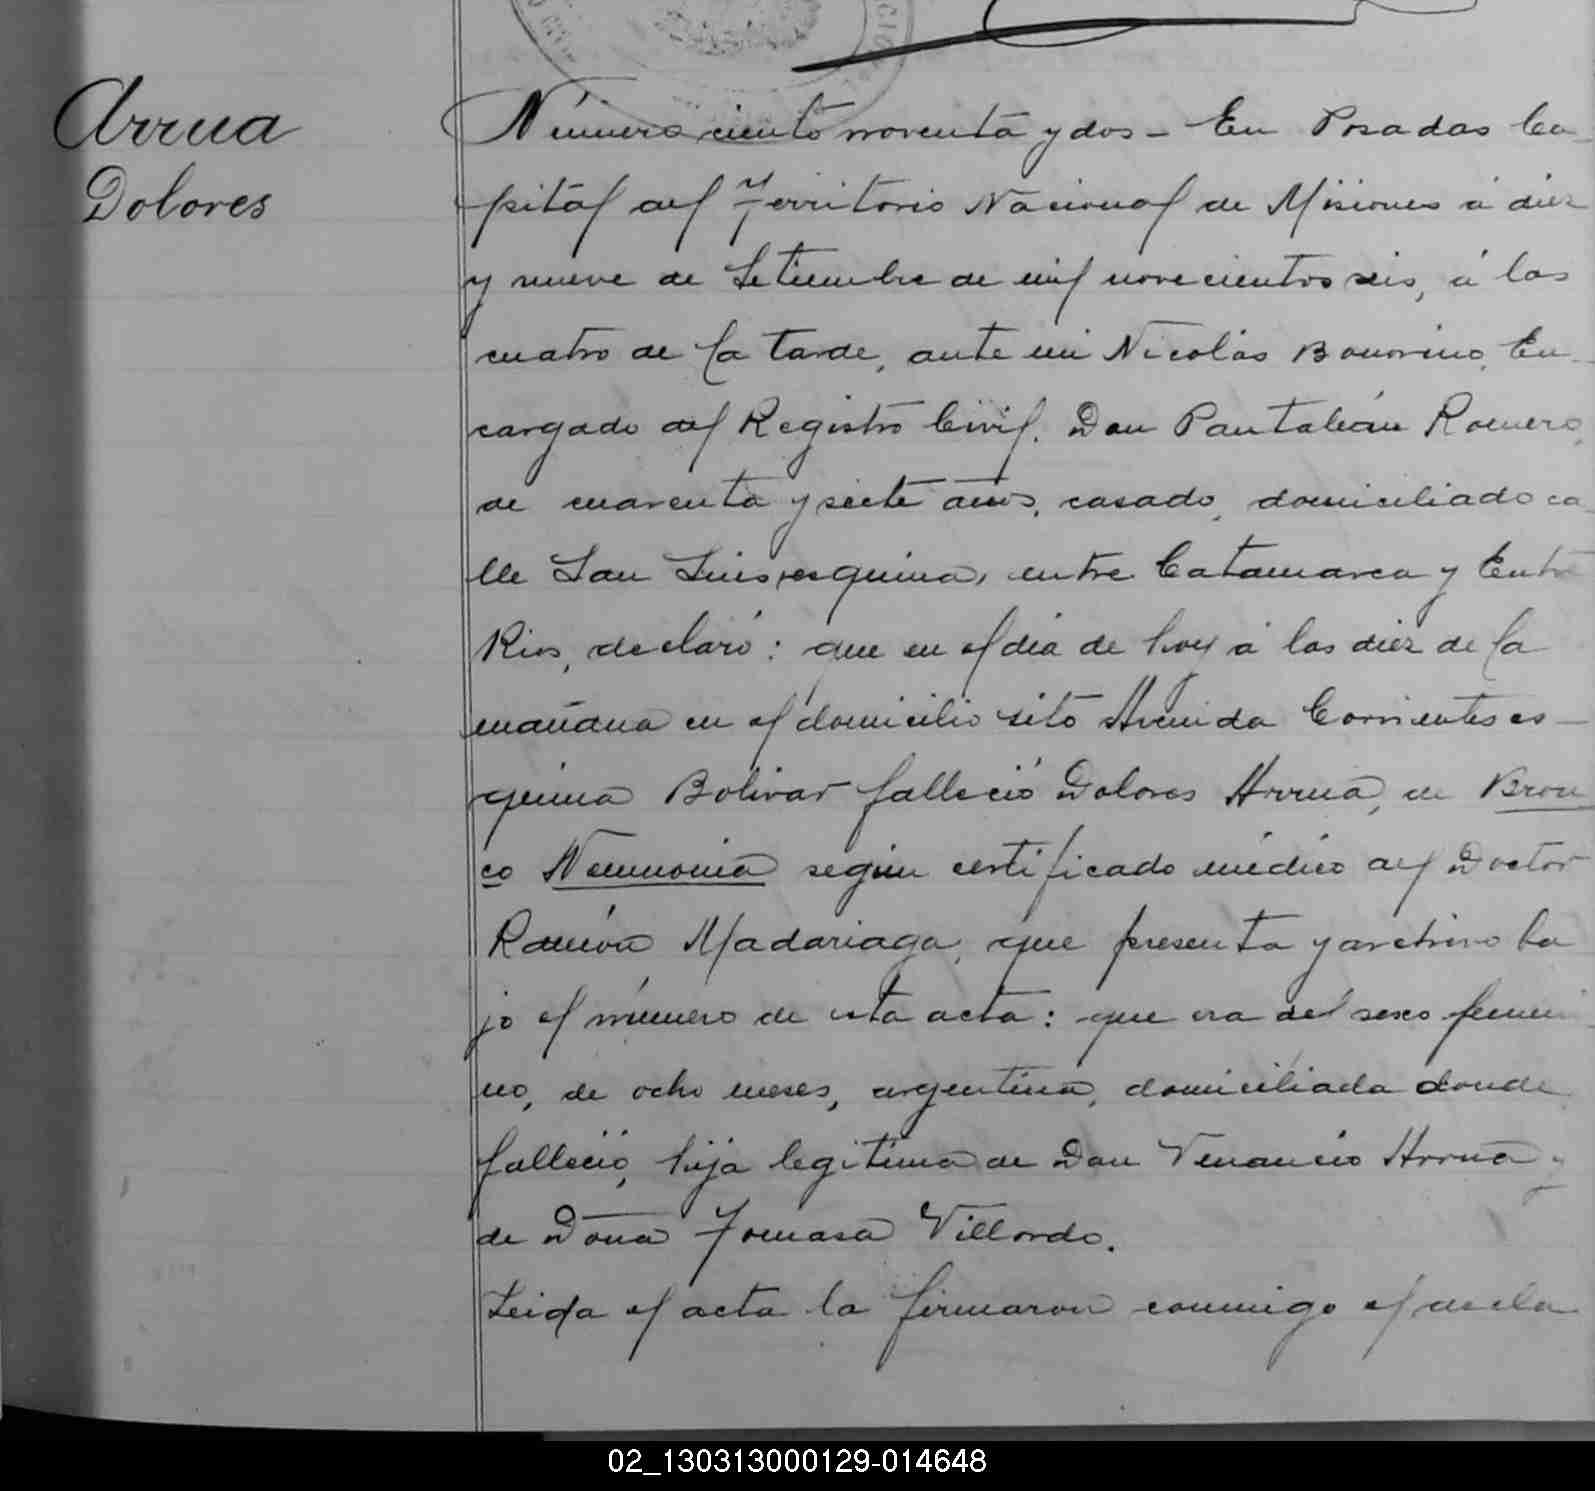 Arrua
Dolores
Número ciento noventa y dos - En Posadas Ca-
pital del Territorio Nacional de Misiones á diez
y nueve de Setiembre de mil novecientos seis, á las
cuatro de la tarde, ante mi Nicolás Bonorino, En-
cargado del Registro Civil. Don Pantaleón Romero,
de cuarenta y siete años, casado, domiciliado ca-
lle San Luis, esquina, entre Catamarca y Entre
Rios, declaró: que en el dia de hoy á las diez de la
mañana en el domicilio sito Avenida Corrientes es-
quina Bolivar falleció Dolores Arrua, de Bron
co Neumonia según certificado médico del Doctor
Ramón Madariaga, que presenta y archivo ba
jo el número de esta acta: que era del sexo femeni
no, de ocho meses, argentina, domiciliada donde
falleció, hija legitima de Don Venancio Arrua y
de Doña Tomasa Villordo.
Leida el acta la firmaron conmigo el decla
02_130313000129-014648